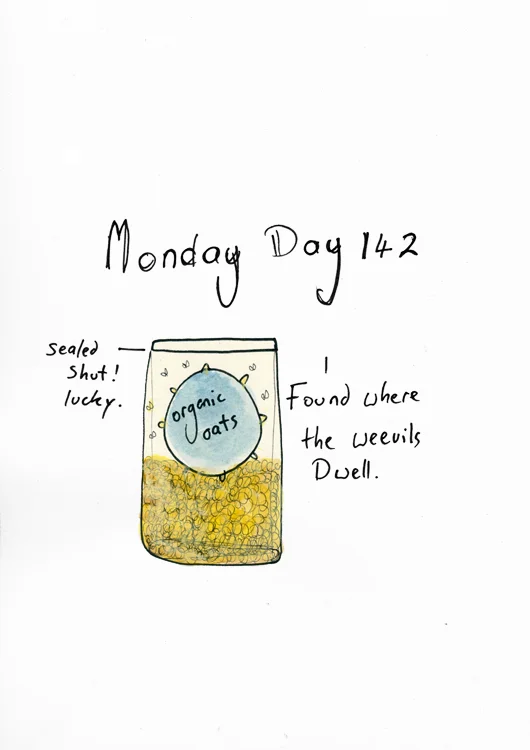 Monday Day 142
sealed
shut!
lucky.
organic
oats
I
Found where
the weevils
Dwell.